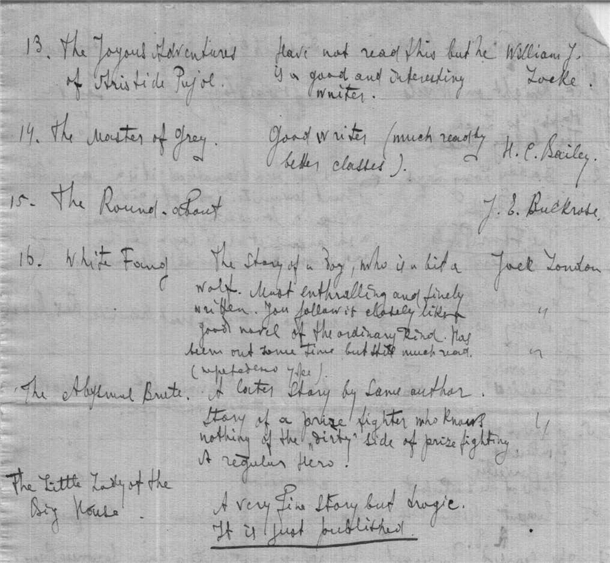 13. The Joyous Adventures Have not read this but he William J.
of Aristide Pujol. is a good and interesting Locke.
writer.
14. The Master of Grey. Good writer (much read by H. C. Bailey.
better classes).
15. The Round-about J. E. Buckrose.
16. White Fang The Story of a Dog, who is a bit a Jack London
wolf. Most enthralling and finely
written. You follow it closely like a "
good novel of the ordinary kind. Has
been out some time but still much read. "
The Abysmal Brute. A later Story by same author.
Story of a prize fighter who knows "
nothing of the "dirty" side of prize fighting
A regular Hero!
The Little Lady of the
Big House. A very fine story but tragic.
It is just published.